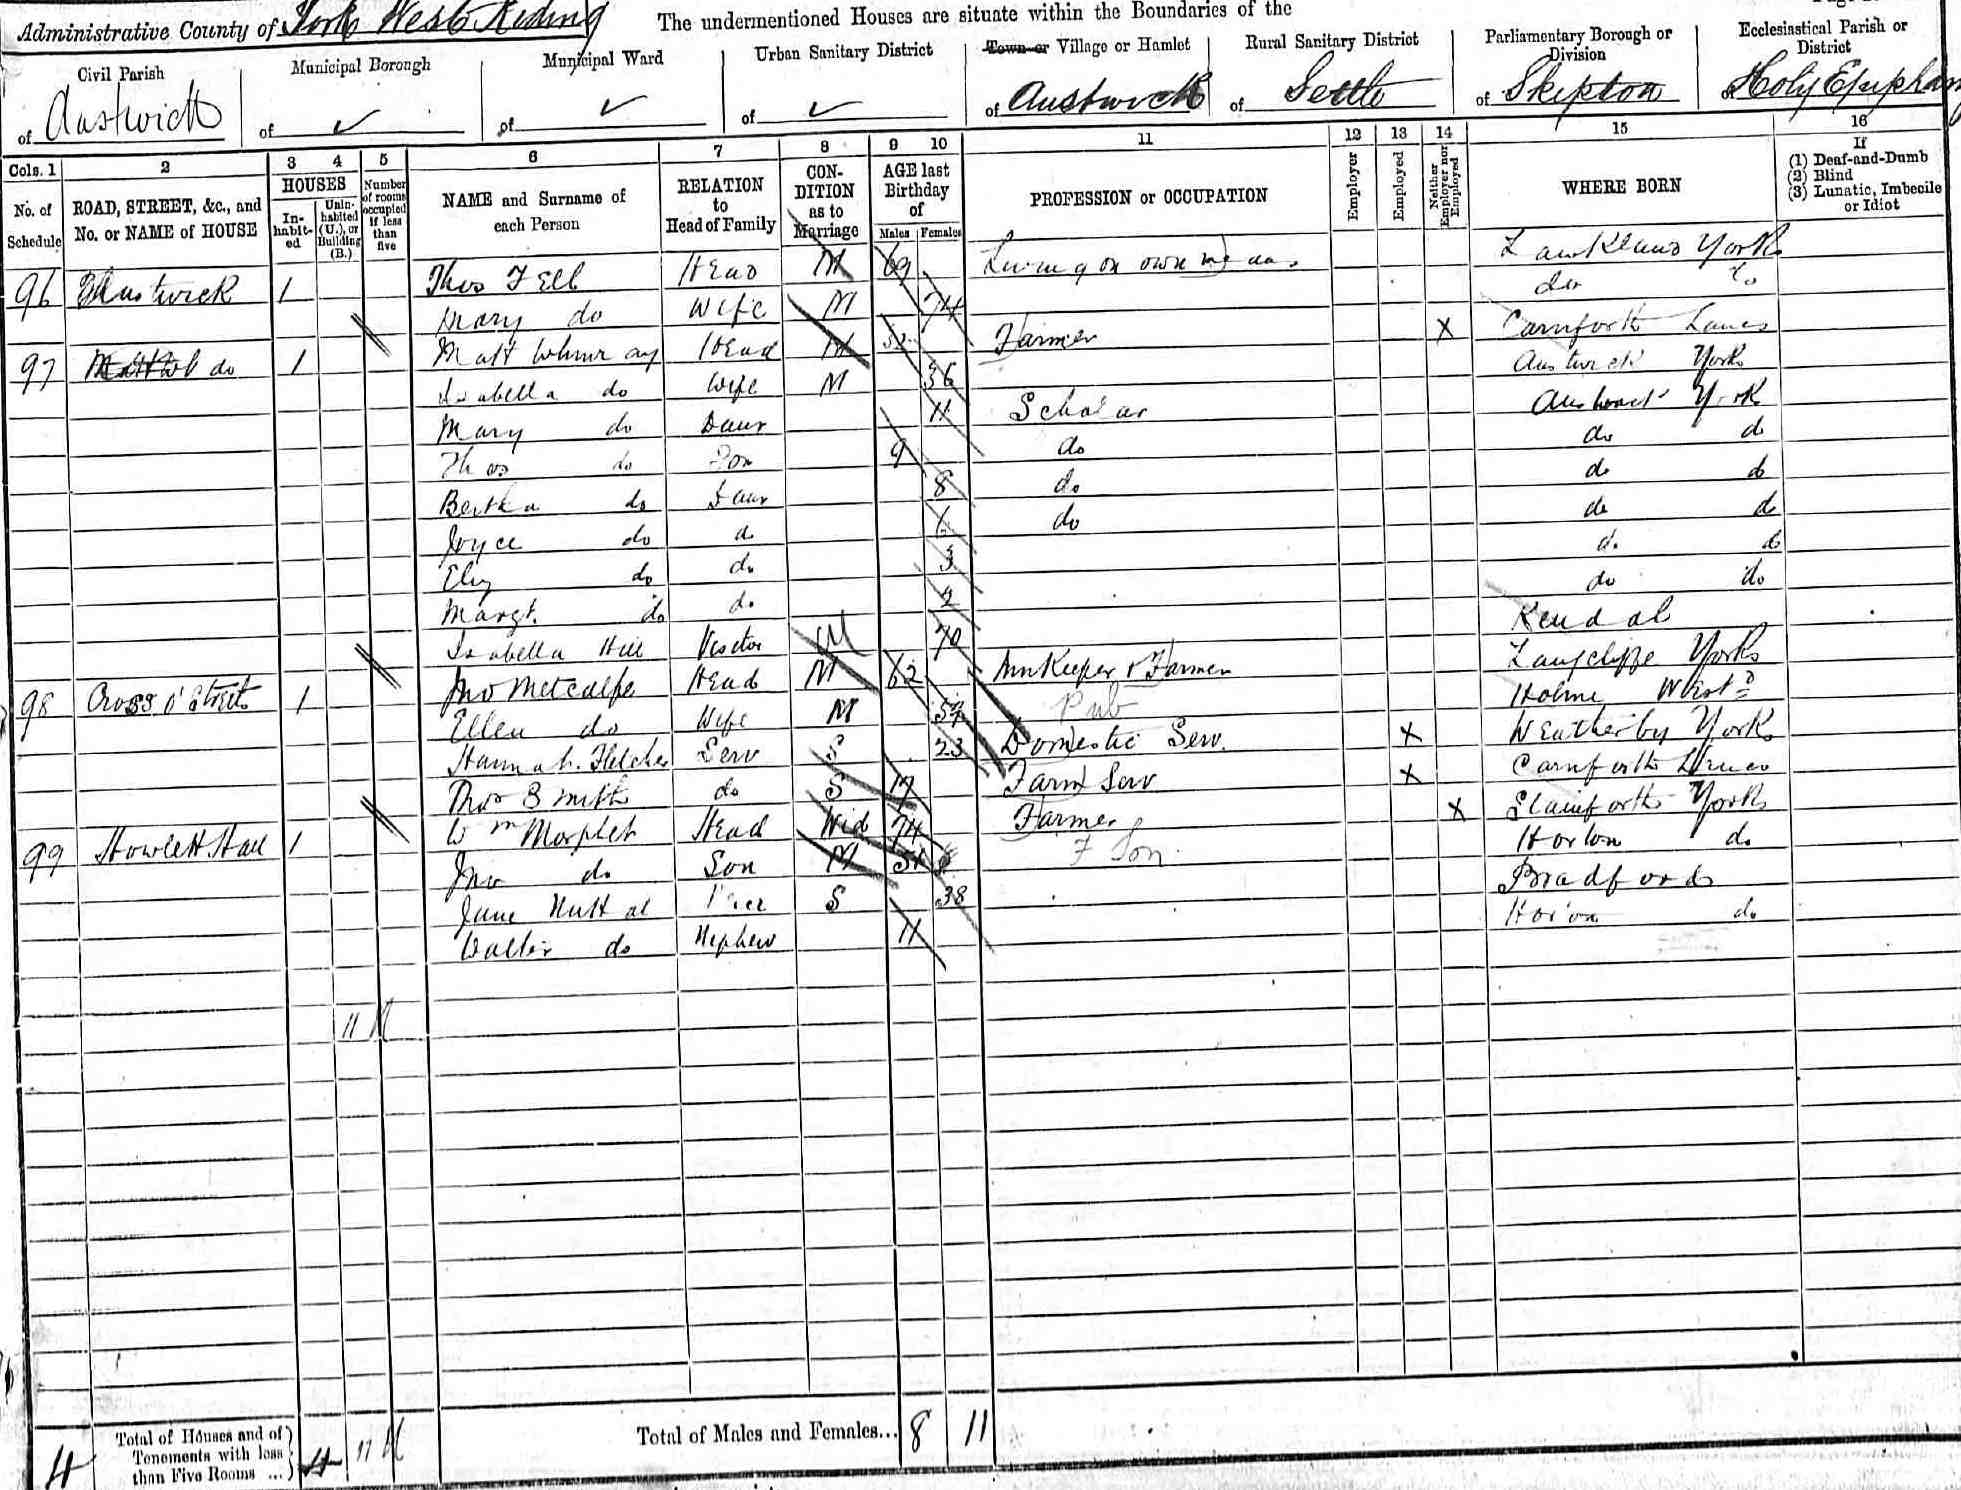 Administrative County of York West Riding The undermentioned Houses are situate within the Boundaries of the
Civil Parish Municipal Borough Municipal Ward Urban Sanitary District Town or Village or Hamlet Rural Sanitary District Parliamentary Borough or Division Ecclesiastical Parish or District
of Austwick of ✓ of ✓ of ✓ of Austwick of Settle of Skipton of Holy Epiphany
Cols. 1 2 3 4 5 6 7 8 9 10 11 12 13 14 15 16
No. of Schedule
ROAD, STREET, &c., and No. or NAME of HOUSE
HOUSES
Inhabited
Uninhabited (U.), or Building (B.)
Number of rooms occupied if less than five
NAME and Surname of each Person
RELATION to Head of Family
CONDITION as to Marriage
AGE last Birthday of
Males Females
PROFESSION or OCCUPATION
Employer
Employed
Neither Employer nor Employed
WHERE BORN
If
(1) Deaf-and-Dumb
(2) Blind
(3) Lunatic, Imbecile or Idiot
96 Austwick 1 Thos Fell Head M 69 Living on own means Lawkland York
Mary do Wife M 74 do do
97 do 1 Matt Head M Farmer X Carnforth Lancs
Isabella do Wife M 36 Austwick York
Mary do Daur 11 Scholar Austwick York
Thos do Son 9 do do do
Bertha do Daur 8 do do do
Joyce do do 6 do do do
Eliz do do 3 do do
Margt. do do 2 do do
Isabella Hill Visitor M 70 Kendal
98 Cross o' Streets 1 Jno Metcalfe Head M 62 Innkeeper & Farmer Langcliffe York
Pub
Ellen do Wife M 57 Holme Westd
Hannah. Fletcher Serv S 23 Domestic Serv. X Weatherby York
Thos Smith do S 17 Farm Serv X Carnforth Lancs
99 Howlett Hall 1 Wm Morphet Head Wid 74 Farmer X Stainforth York
Jno do Son M 34 F Son Horton do
Jane Nuttal S 38 Bradford
Walter do Nephew 11 Horton do
4 Total of Houses and of Tenements with less than Five Rooms ... 4 Total of Males and Females... 8 11